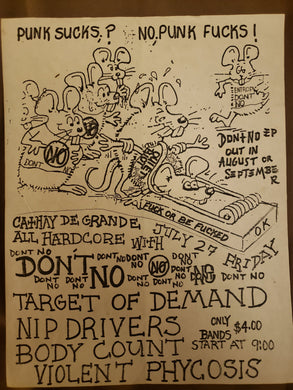 PUNK SUCKS? NO, PUNK FUCKS!
ENTROPY DON'T NO
DON'T NO EP
OUT IN
AUGUST OR
SEPTEMBE
R
DON'T NO
FUCK OR BE FUCKED
OK
CATHAY DE GRANDE
ALL HARDCORE WITH
JULY 27 FRIDAY
DONT NO
DON'T NO
DONT NO
DONT NO
NO
DONT NO
DONT NO
DONT NO
DONT NO
TARGET OF DEMAND
NIP DRIVERS
BODY COUNT
VIOLENT PHYCOSIS
ONLY $4.00
BANDS START AT 9:00